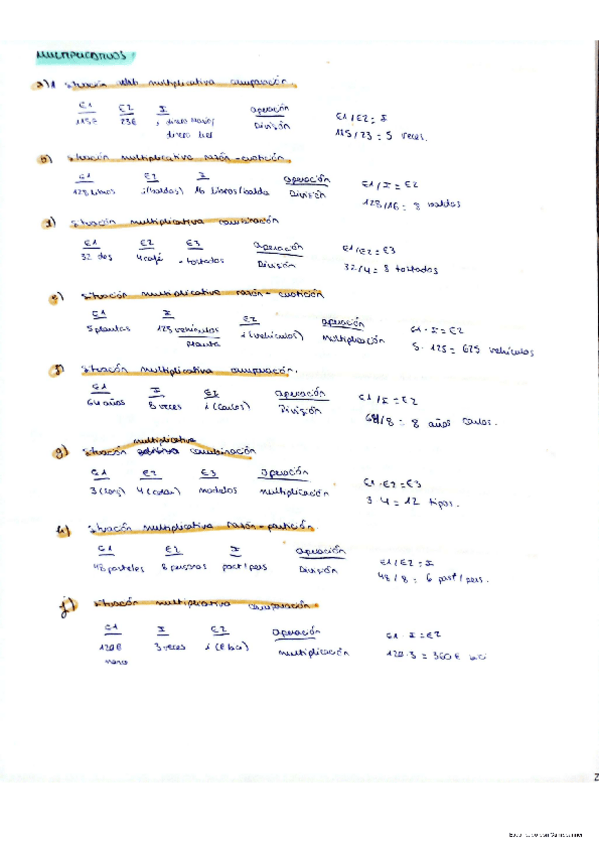 MULTIPLICATIVOS:
a) 1 Situación multiplicativa comparación.
E1 E2 I operación
115€ 23€ división E1/E2 = I
115/23 = 5 veces.
b) Situación multiplicativa razón-cuotición
E1 E2 I operación E1/I = E2
128 libros ¿(baldas) 16 libros/balda División 128/16 = 8 baldas
d) Situación multiplicativa combinación
E1 E2 E3 operación E1/E2 = E3
32 des 4 café - tostados División 32/4 = 8 tostados
e) Situación multiplicativa razón-cuotición
E1 I E2 operación E1 · I = E2
5 plantas 125 vehículos ¿(vehículos) multiplicación 5 · 125 = 625 vehículos
planta
f) Situación multiplicativa comparación.
E1 I E2 operación E1/I = E2
64 años 8 veces ¿(Carlos) División 64/8 = 8 años Carlos.
multiplicativa
g) Situación combinación
E1 E2 E3 operación E1 · E2 = E3
3 (long) 4 (coran) modelos multiplicación 3 · 4 = 12 tipos.
h) Situación multiplicativa razón-partición
E1 E2 I operación E1/E2 = I
48 pasteles 8 personas past/pers División 48/8 = 6 past/pers.
j) Situación multiplicativa comparación.
E1 I E2 operación E1 · I = E2
120€ 3 veces ¿(€ luci) multiplicación 120 · 3 = 360€ luci
2